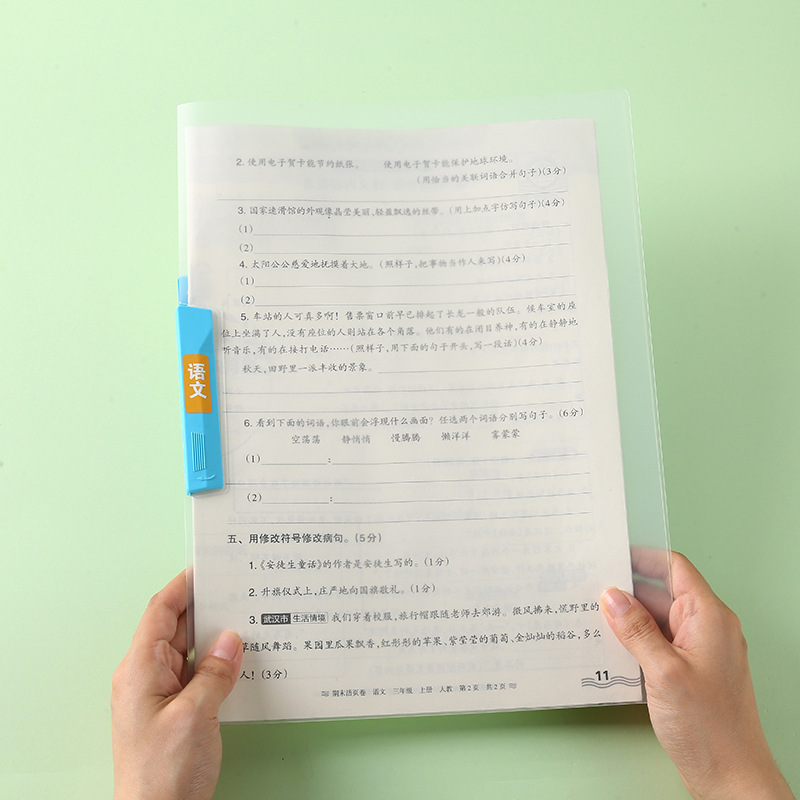 2. 使用电子贺卡能节约纸张。 使用电子贺卡能保护地球环境。
(用恰当的关联词语合并句子)(3分)
3. 国家速滑馆的外观像晶莹美丽,轻盈飘逸的丝带。(用上加点字仿写句子)(4分)
(1)
(2)
4. 太阳公公慈爱地抚摸着大地。(照样子,把事物当作人来写)(4分)
(1)
(2)
5. 车站的人可真多啊! 售票窗口前早已排起了长龙一般的队伍。候车室的座
位上坐满了人,没有座位的人则站在各个角落。他们有的在闭目养神,有的在静静地
听音乐,有的在接打电话……(照样子,用下面的句子开头,写一段话)(4分)
秋天,田野里一派丰收的景象。
语文
6. 看到下面的词语,你眼前会浮现什么画面? 任选两个词语分别写句子。(6分)
空荡荡 静悄悄 慢腾腾 懒洋洋 雾蒙蒙
(1) :
(2) :
五、用修改符号修改病句。(5分)
1.《安徒生童话》的作者是安徒生写的。(1分)
2. 升旗仪式上,庄严地向国旗敬礼。(1分)
3. 武汉市 生活情境 我们穿着校服,旅行帽跟随老师去郊游。微风拂来,荒野里的
草随风舞蹈。果园里瓜果飘香,红彤彤的苹果、紫莹莹的葡萄、金灿灿的稻谷,多么
人!(3分)
11
期末活页卷 语文 三年级 上册 人教 第2页 共2页